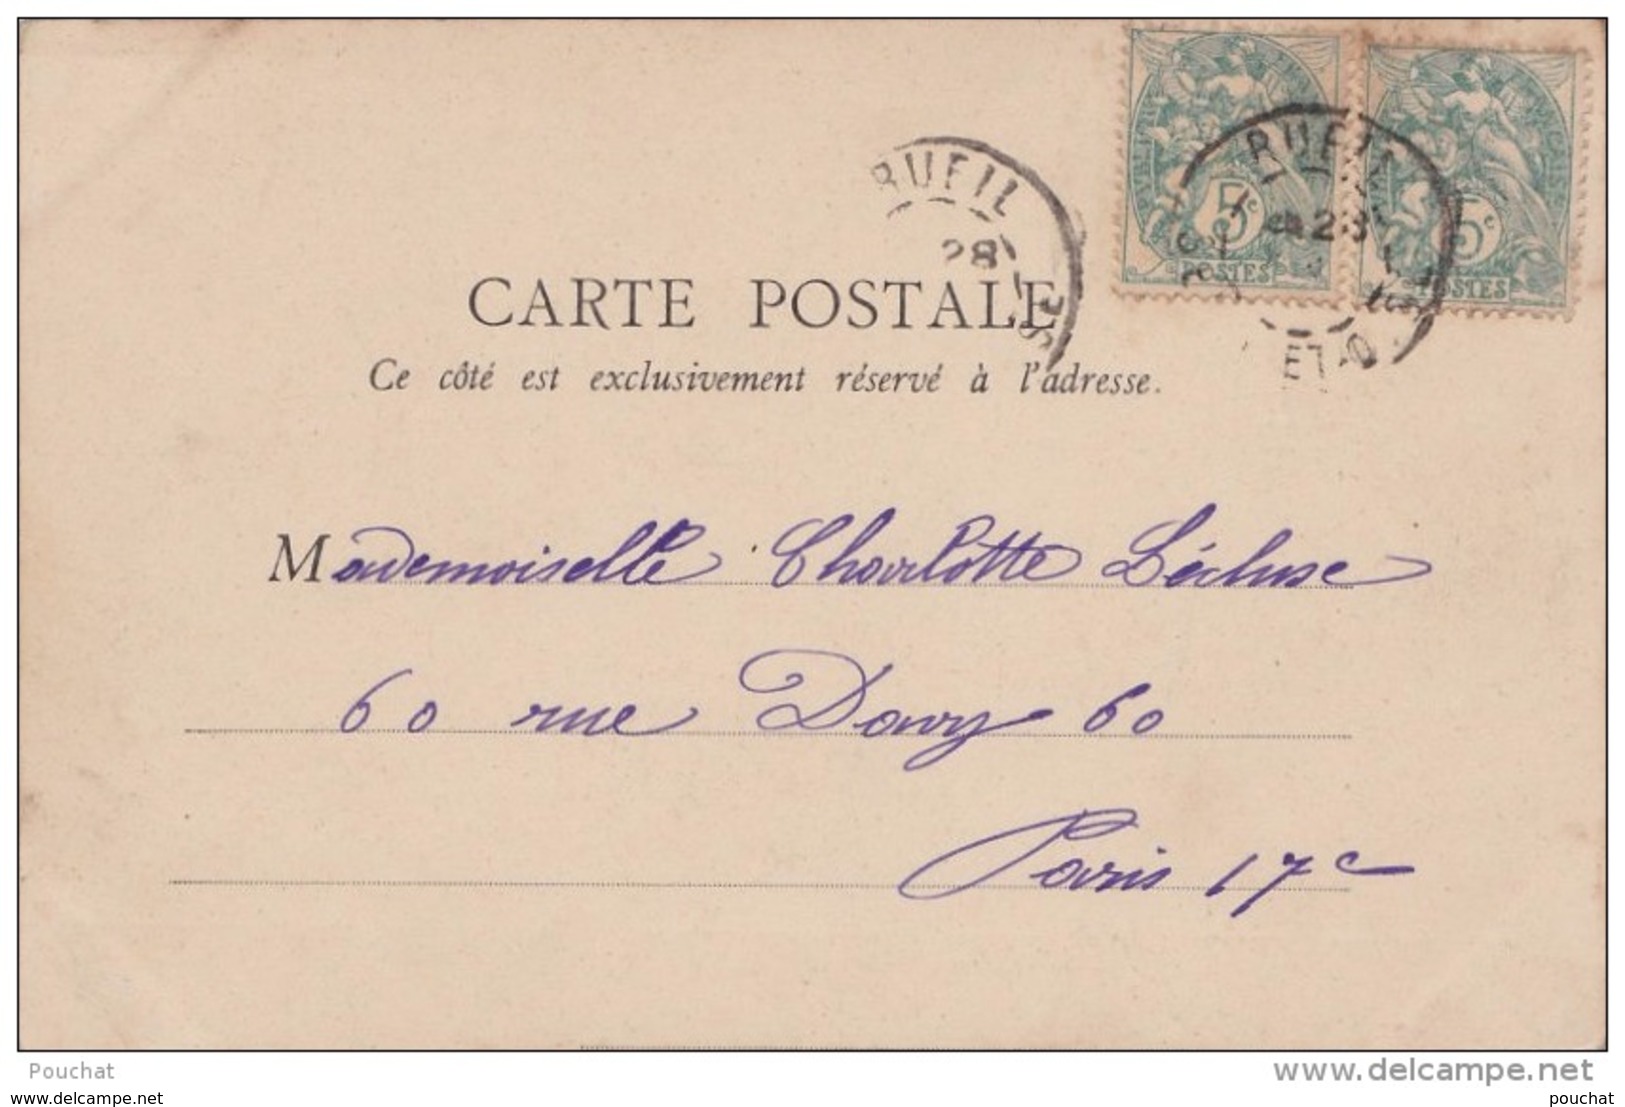 RUEIL
28
RUEIL
5c
POSTES
5c
POSTES
CARTE POSTALE
Ce côté est exclusivement réservé à l'adresse.
Mademoiselle Charlotte Lécluse
60 rue Davy 60
Paris 17e
Pouchat
www.delcampe.net
www.delcampe.net
pouchat